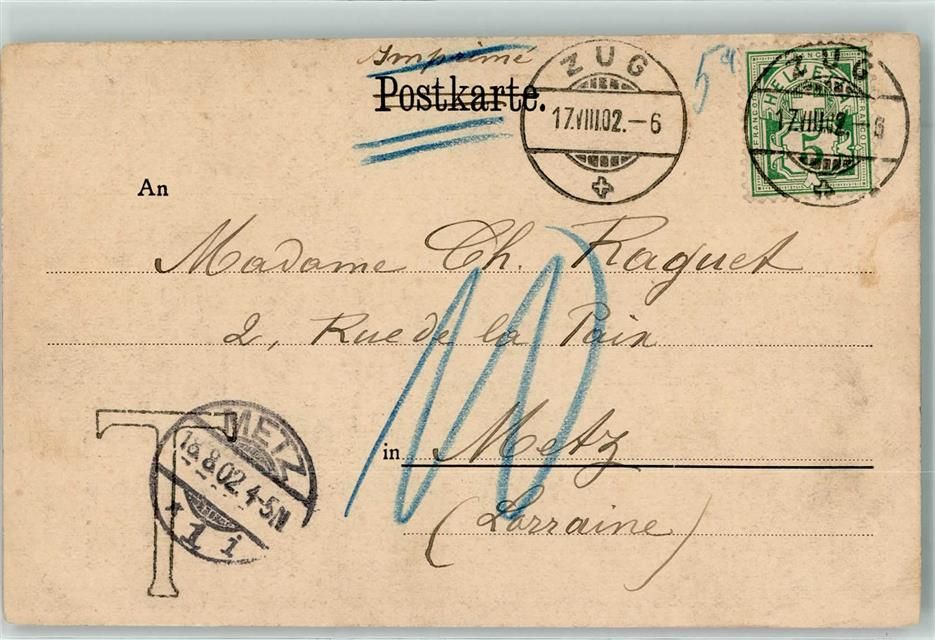 Imprimé
Postkarte.
ZUG
17.VIII.02.-6
5
ZUG
17.VIII.02.-6
HELVETIA
FRANCO
FRANCO
5
An
Madame Ch. Raguet
2, Rue de la Paix
10
in Metz
(Lorraine)
T
METZ
18.8.02.4-5N
* 1 i